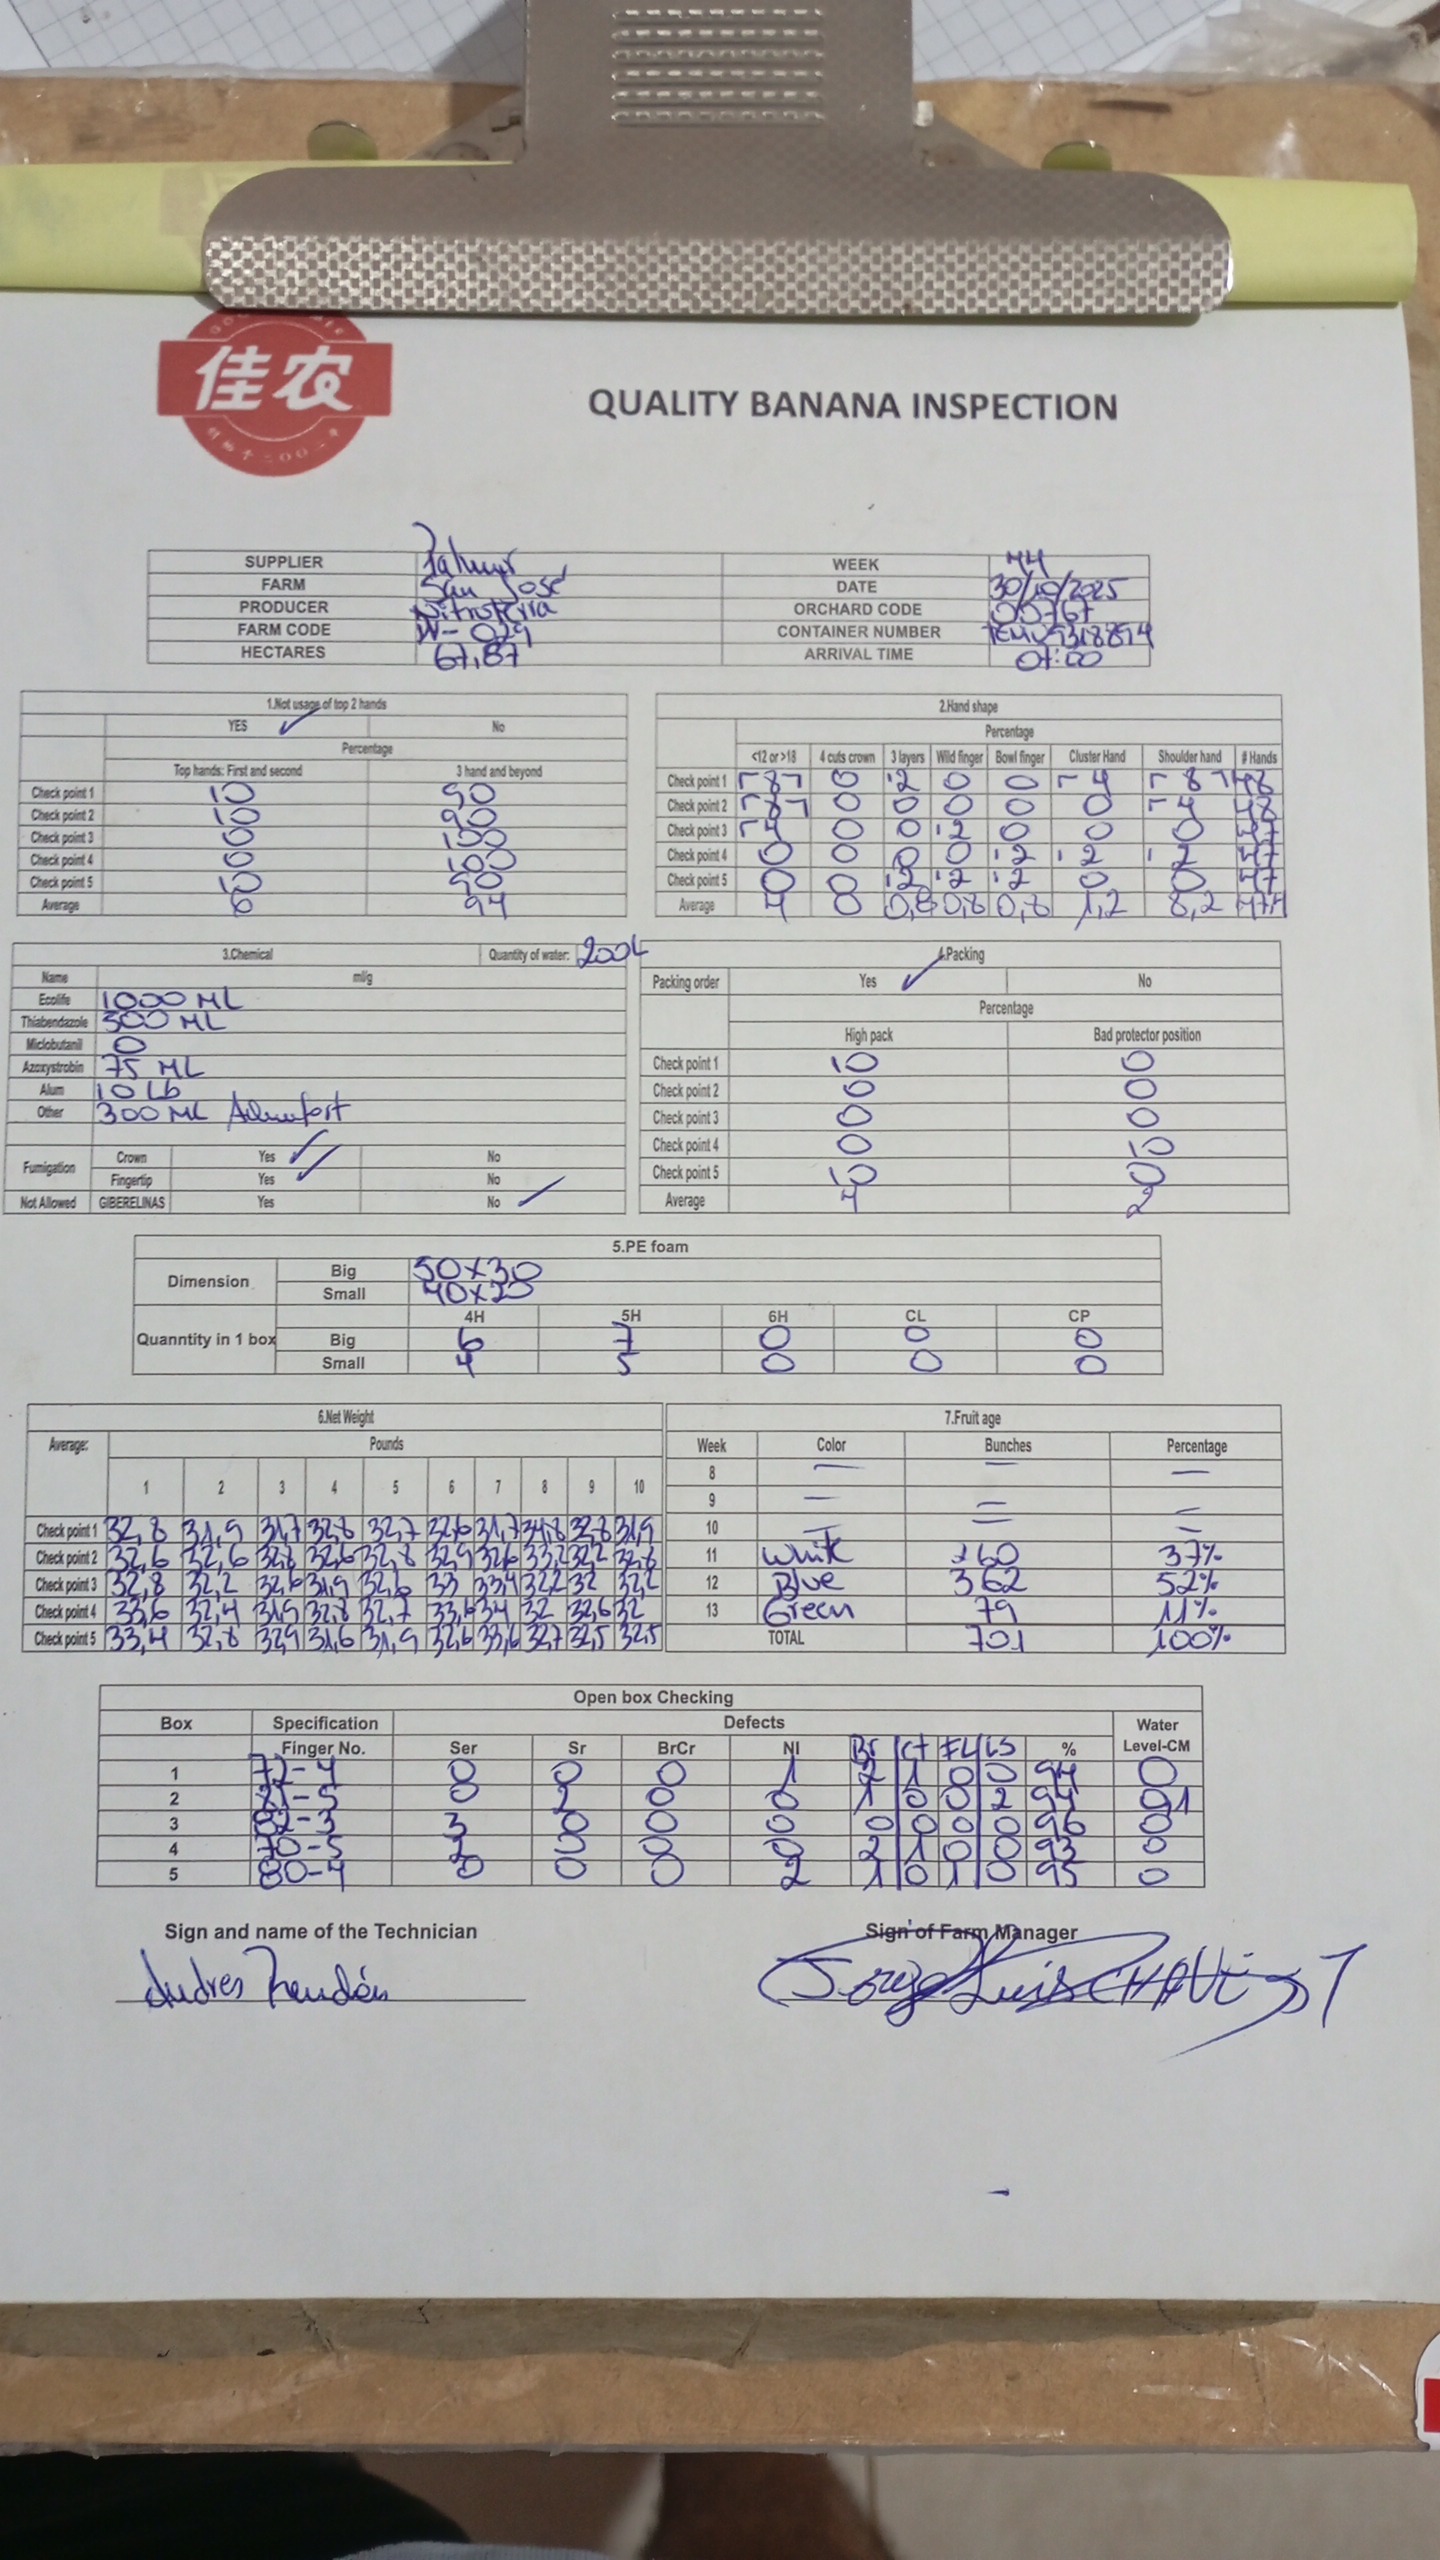 佳农
QUALITY BANANA INSPECTION
SUPPLIER Palmar WEEK 44
FARM San José DATE 30/10/2025
PRODUCER Nitroterra ORCHARD CODE 00767
FARM CODE W-029 CONTAINER NUMBER
HECTARES 67,87 ARRIVAL TIME 07:00
1.Not usage of top 2 hands
YES ✓ No
Percentage
Top hands: First and second 3 hand and beyond
Check point 1 10 90
Check point 2 10 90
Check point 3 0 100
Check point 4 0 100
Check point 5 10 90
Average 6 94
2.Hand shape
Percentage
<12 or >18 4 cuts crown 3 layers Wild finger Bowl finger Cluster Hand Shoulder hand # Hands
Check point 1 8 0 2 0 0 4 8 48
Check point 2 8 0 0 0 0 0 4 48
Check point 3 4 0 0 2 0 0 0 47
Check point 4 0 0 0 0 2 2 2 47
Check point 5 0 0 2 2 2 0 0 47
Average 4 0 0,8 0,8 0,8 1,2 47,4
3.Chemical Quantity of water: 200L
Name ml/g
Ecolife 1000 ML
Thiabendazole 500 ML
Miclobutanil 0
Azoxystrobin 75 ML
Alum 10 Lb
Other 300 ML
Fumigation Crown Yes ✓ No
Fingertip Yes ✓ No
Not Allowed GIBERELINAS Yes No ✓
4.Packing
Packing order Yes ✓ No
Percentage
High pack Bad protector position
Check point 1 10 0
Check point 2 0 0
Check point 3 0 0
Check point 4 0 10
Check point 5 10 0
Average 4 2
5.PE foam
Dimension Big 50x30
Small 40x20
4H 5H 6H CL CP
Quanntity in 1 box Big 6 7 0 0 0
Small 4 5 0 0 0
6.Net Weight
Average: Pounds
1 2 3 4 5 6 7 8 9 10
Check point 1 32,8 31,9 31,7 32,8 32,7 32,6 31,7 34,8 32,8 31,9
Check point 2 32,6 32,6 32,8 32,6 32,8 32,9 32,6 33,2 32,2 32,8
Check point 3 32,8 32,2 32,6 31,9 32,6 33 33,4 32,2 32 32,2
Check point 4 33,6 32,4 31,9 32,8 32,7 33,6 34 32 32,6 32
Check point 5 33,4 32,8 32,9 31,6 31,9 32,6 33,6 32,7 32,5 32,5
7.Fruit age
Week Color Bunches Percentage
8 — — —
9 — — —
10 — — —
11 White 260 37%
12 Blue 362 52%
13 Green 79 11%
TOTAL 701 100%
Open box Checking
Box Specification Defects Water
Finger No. Ser Sr BrCr NI Br Ct FL LS % Level-CM
1 72-4 0 0 0 1 2 1 0 0 94 0
2 81-5 0 2 0 0 1 0 0 2 94 01
3 82-3 3 0 0 0 0 0 0 0 96 0
4 70-5 2 0 0 0 2 1 0 0 93 0
5 80-4 0 0 0 2 1 0 1 0 95 0
Sign and name of the Technician Sign of Farm Manager
Andres Rendón Jorge Luis